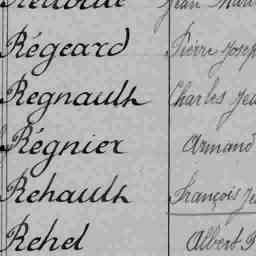 Régeard Pierre Josep
Regnault Charles Jea
Régnier Armand
Rehault François Je
Rehel Albert P